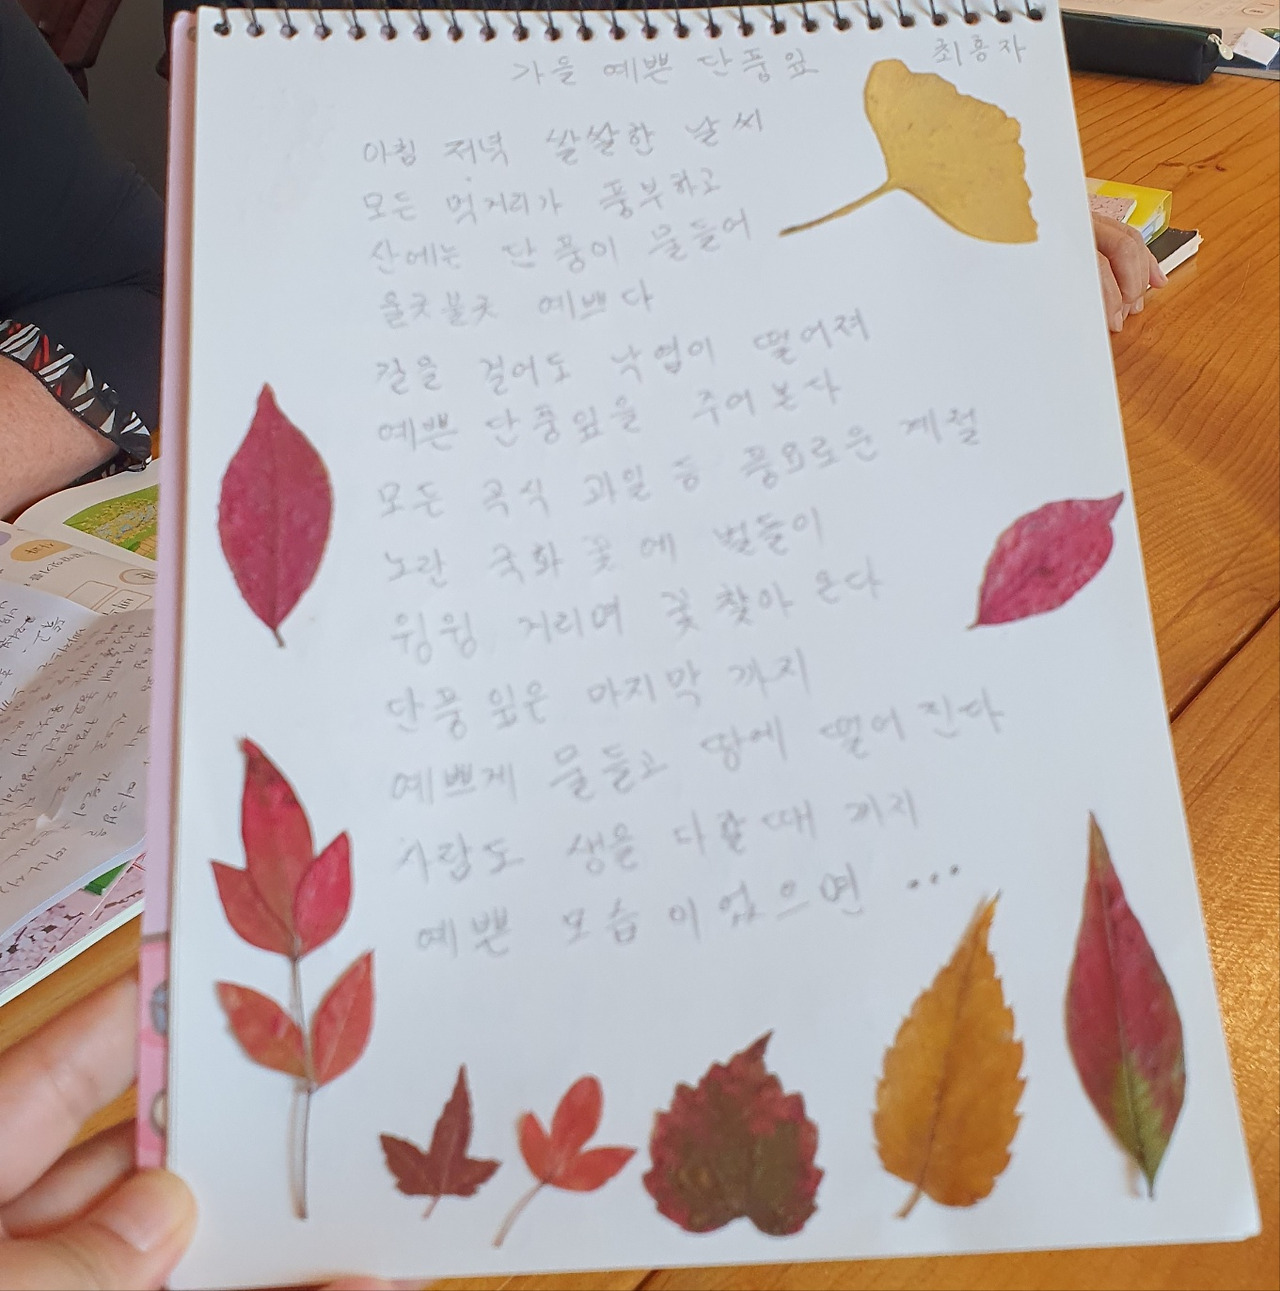 가을 예쁜 단풍잎
최홍자
아침 저녁 쌀쌀한 날씨
모든 먹거리가 풍부하고
산에는 단풍이 물들어
울긋불긋 예쁘다
길을 걸어도 낙엽이 떨어져
예쁜 단풍잎을 주어본다
모든 곡식 과일 등 풍요로운 계절
노란 국화 꽃에 벌들이
윙윙 거리며 꽃 찾아 온다
단풍잎은 마지막 까지
예쁘게 물들고 땅에 떨어진다
사람도 생을 다할때 까지
예쁜 모습이었으면 ...